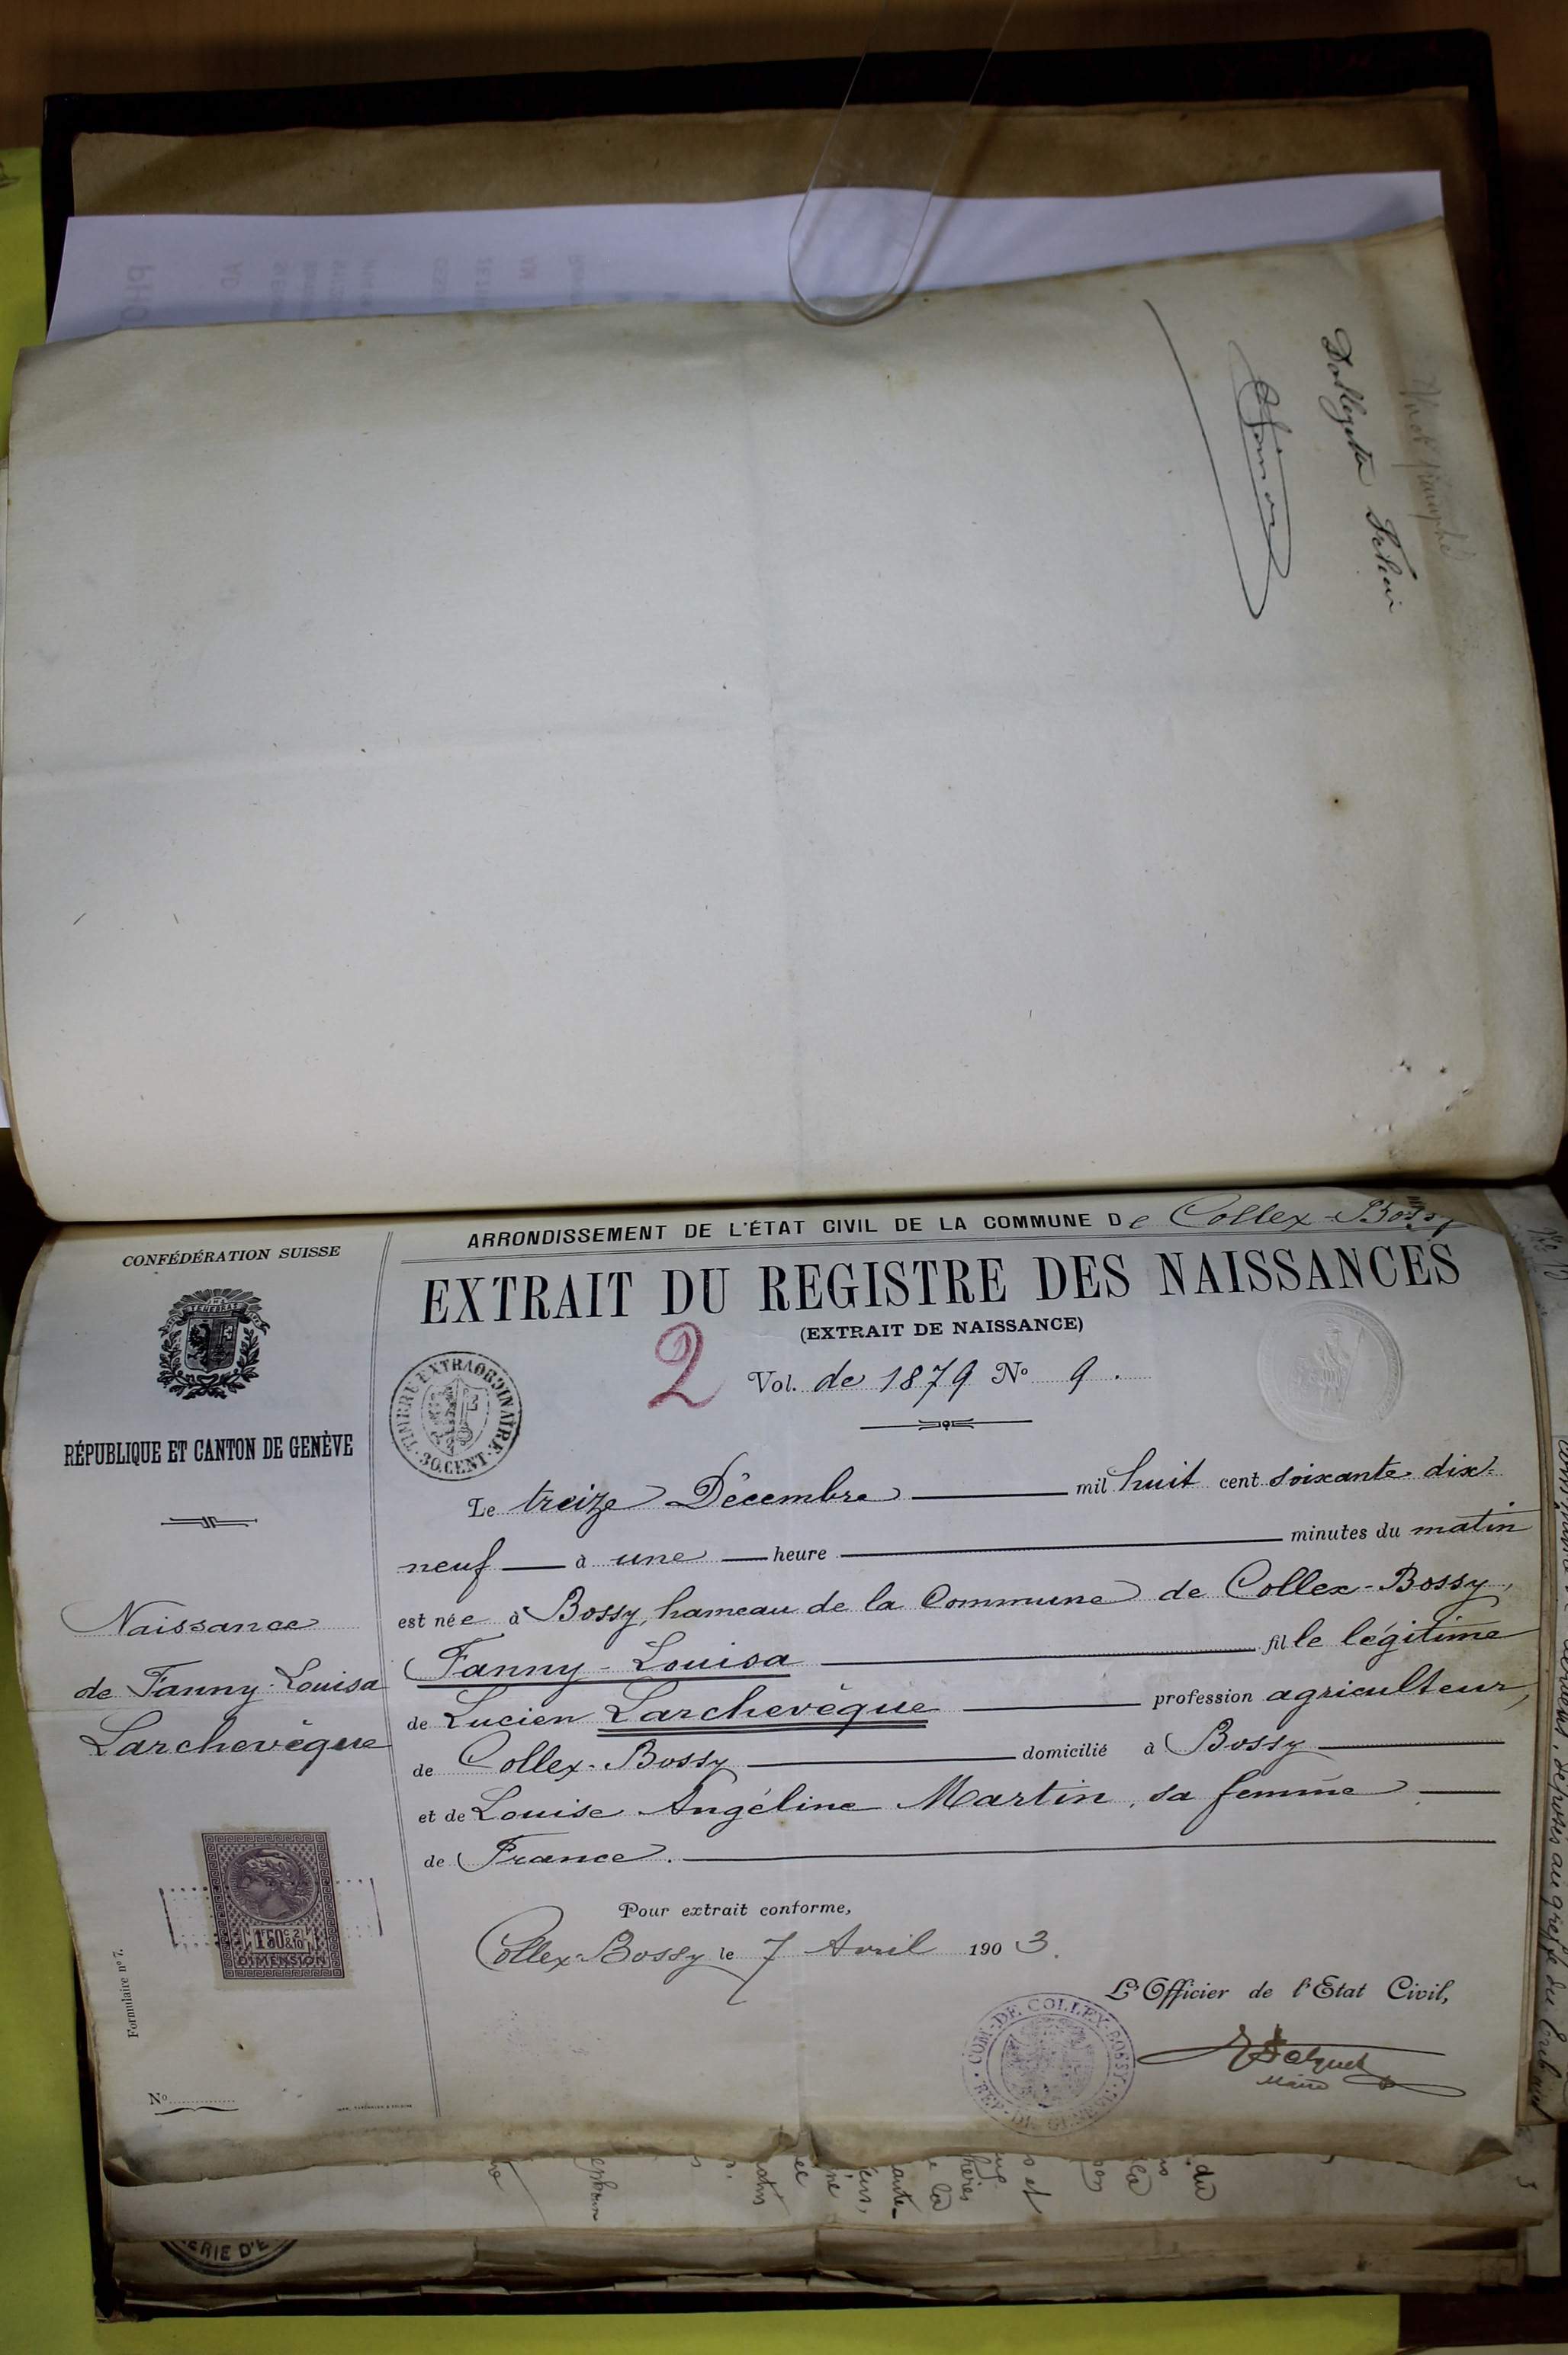 CONFÉDÉRATION SUISSE
RÉPUBLIQUE ET CANTON DE GENÈVE
Naissance
de Fanny-Louisa
Larchevêque
1F50c 2/10
& 10
DIMENSION
Formulaire no 7.
No
ARRONDISSEMENT DE L'ÉTAT CIVIL DE LA COMMUNE De Collex-Bossy
EXTRAIT DU REGISTRE DES NAISSANCES
(EXTRAIT DE NAISSANCE)
2
Vol. de 1879 No 9.
TIMBRE EXTRAORDINAIRE
30. CENT.
Le treize Décembre mil huit cent soixante-dix-
neuf à une heure minutes du matin
est née à Bossy, hameau de la Commune de Collex-Bossy,
Fanny-Louisa fille légitime
de Lucien Larchevêque profession agriculteur,
de Collex-Bossy domicilié à Bossy
et de Louise Angéline Martin, sa femme
de France.
Pour extrait conforme,
Collex-Bossy le 7 Avril 1903.
L'Officier de l'Etat Civil,
Maire
COM. DE COLLEX-BOSSY
REP. DE GENÈVE